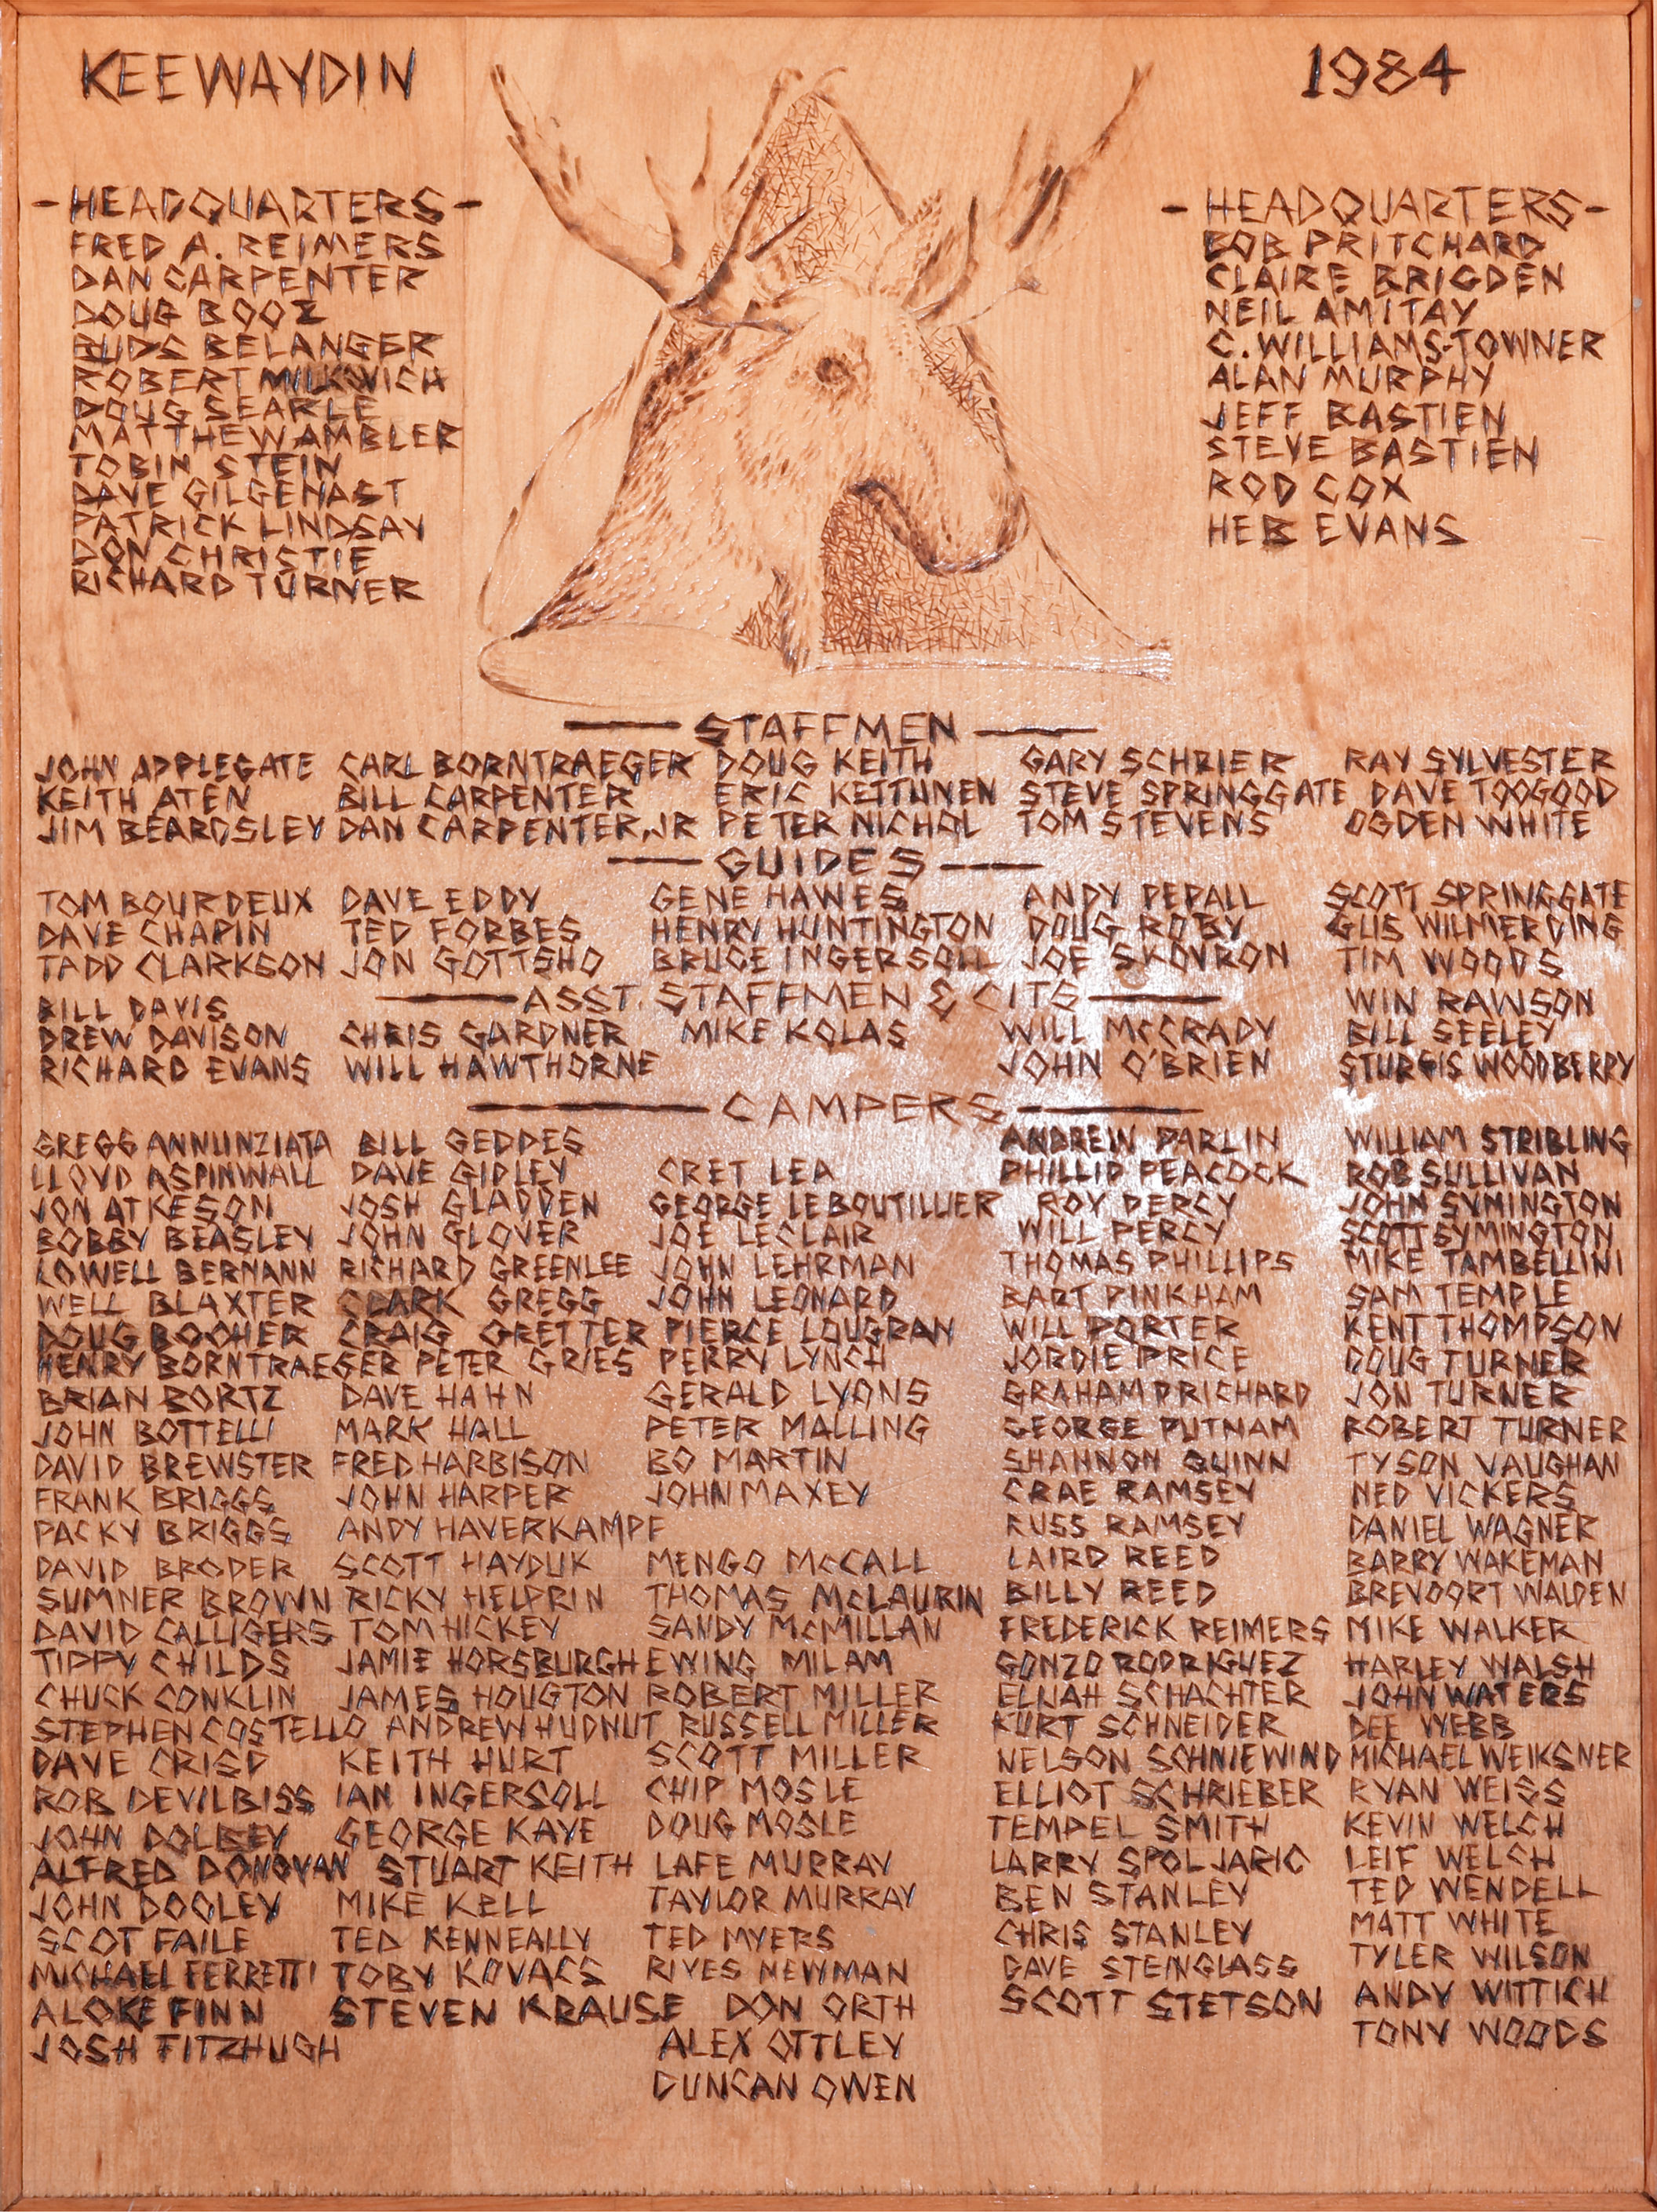 KEEWAYDIN 1984
-HEADQUARTERS-
FRED A. REIMERS
DAN CARPENTER
DOUG BOOZ
BUDS BELANGER
ROBERT MILKOVICH
DOUG SEARLE
MATTHEW AMBLER
TOBIN STEIN
DAVE GILGENAST
PATRICK LINDSAY
DON CHRISTIE
RICHARD TURNER
-HEADQUARTERS-
BOB PRITCHARD
CLAIRE BRIGDEN
NEIL AMITAY
C. WILLIAMS-TOWNER
ALAN MURPHY
JEFF BASTIEN
STEVE BASTIEN
ROD COX
HEB EVANS
— STAFFMEN —
JOHN APPLEGATE CARL BORNTRAEGER DOUG KEITH GARY SCHRIER RAY SYLVESTER
KEITH ATEN BILL CARPENTER ERIC KETTUNEN STEVE SPRINGGATE DAVE TOOGOOD
JIM BEARDSLEY DAN CARPENTER, JR PETER NICHOL TOM STEVENS OGDEN WHITE
— GUIDES —
TOM BOURDEUX DAVE EDDY GENE HAWES ANDY PEPALL SCOTT SPRINGGATE
DAVE CHAPIN TED FORBES HENRY HUNTINGTON DOUG ROBY GUS WILMERDING
TADD CLARKSON JON GOTTSHO BRUCE INGERSOLL JOE SKOVRON TIM WOODS
— ASST. STAFFMEN & CITS —
BILL DAVIS WIN RAWSON
DREW DAVISON CHRIS GARDNER MIKE KOLAS WILL McCRADY BILL SEELEY
RICHARD EVANS WILL HAWTHORNE JOHN O'BRIEN STURGIS WOODBERRY
— CAMPERS —
GREGG ANNUNZIATA BILL GEDDES ANDREW PARLIN WILLIAM STRIBLING
LLOYD ASPINWALL DAVE GIDLEY CRET LEA PHILLIP PEACOCK ROB SULLIVAN
JON ATKESON JOSH GLADDEN GEORGE LEBOUTILLIER ROY PERCY JOHN SYMINGTON
BOBBY BEASLEY JOHN GLOVER JOE LECLAIR WILL PERCY SCOTT SYMINGTON
LOWELL BERMANN RICHARD GREENLEE JOHN LEHRMAN THOMAS PHILLIPS MIKE TAMBELLINI
WELL BLAXTER CLARK GREGG JOHN LEONARD BART PINKHAM SAM TEMPLE
DOUG BOOHER CRAIG GRETTER PIERCE LOUGRAN WILL PORTER KENT THOMPSON
HENRY BORNTRAEGER PETER GRIES PERRY LYNCH JORDIE PRICE DOUG TURNER
BRIAN BORTZ DAVE HAHN GERALD LYONS GRAHAM PRICHARD JON TURNER
JOHN BOTTELLI MARK HALL PETER MALLING GEORGE PUTNAM ROBERT TURNER
DAVID BREWSTER FRED HARBISON BO MARTIN SHANNON QUINN TYSON VAUGHAN
FRANK BRIGGS JOHN HARPER JOHN MAXEY CRAE RAMSEY NED VICKERS
PACKY BRIGGS ANDY HAVERKAMPF RUSS RAMSEY DANIEL WAGNER
DAVID BRODER SCOTT HAYDUK MENGO McCALL LAIRD REED BARRY WAKEMAN
SUMNER BROWN RICKY HELPRIN THOMAS McLAURIN BILLY REED BREVOORT WALDEN
DAVID CALLIGERS TOM HICKEY SANDY McMILLAN FREDERICK REIMERS MIKE WALKER
TIPPY CHILDS JAMIE HORSBURGH EWING MILAM GONZO RODRIGUEZ HARLEY WALSH
CHUCK CONKLIN JAMES HOUGTON ROBERT MILLER ELIJAH SCHACHTER JOHN WATERS
STEPHEN COSTELLO ANDREW HUDNUT RUSSELL MILLER KURT SCHNEIDER DEE WEBB
DAVE CRISP KEITH HURT SCOTT MILLER NELSON SCHNIEWIND MICHAEL WEIKSNER
ROB DEVILBISS IAN INGERSOLL CHIP MOSLE ELLIOT SCHRIEBER RYAN WEISS
JOHN DOLBEY GEORGE KAYE DOUG MOSLE TEMPEL SMITH KEVIN WELCH
ALFRED DONOVAN STUART KEITH LAFE MURRAY LARRY SPOLJARIC LEIF WELCH
JOHN DOOLEY MIKE KELL TAYLOR MURRAY BEN STANLEY TED WENDELL
SCOT FAILE TED KENNEALLY TED MYERS CHRIS STANLEY MATT WHITE
MICHAEL FERRETTI TOBY KOVACS RIVES NEWMAN DAVE STEINGLASS TYLER WILSON
ALOKE FINN STEVEN KRAUSE DON ORTH SCOTT STETSON ANDY WITTICH
JOSH FITZHUGH ALEX OTTLEY TONY WOODS
DUNCAN OWEN